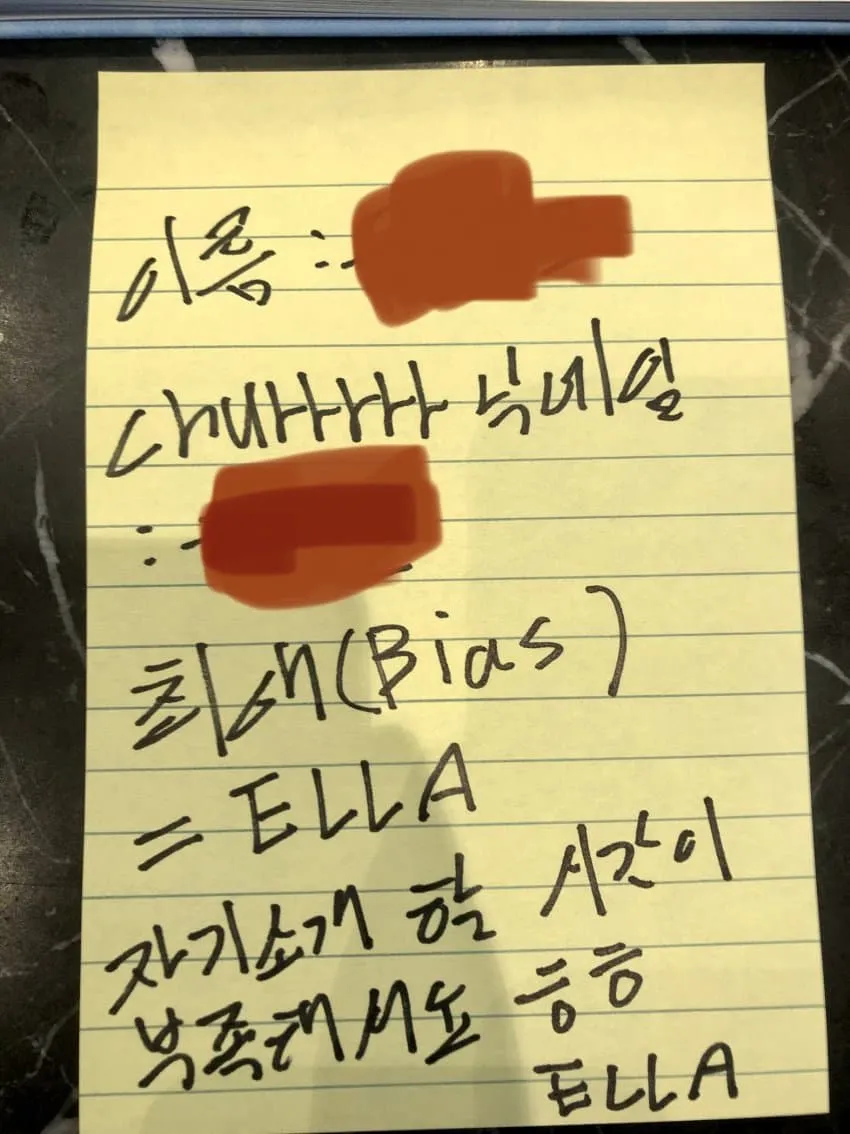 이름 :
닉네임
:
최애(Bias)
= ELLA
자기소개 할 시간이
부족해서요 ㅎㅎ
ELLA